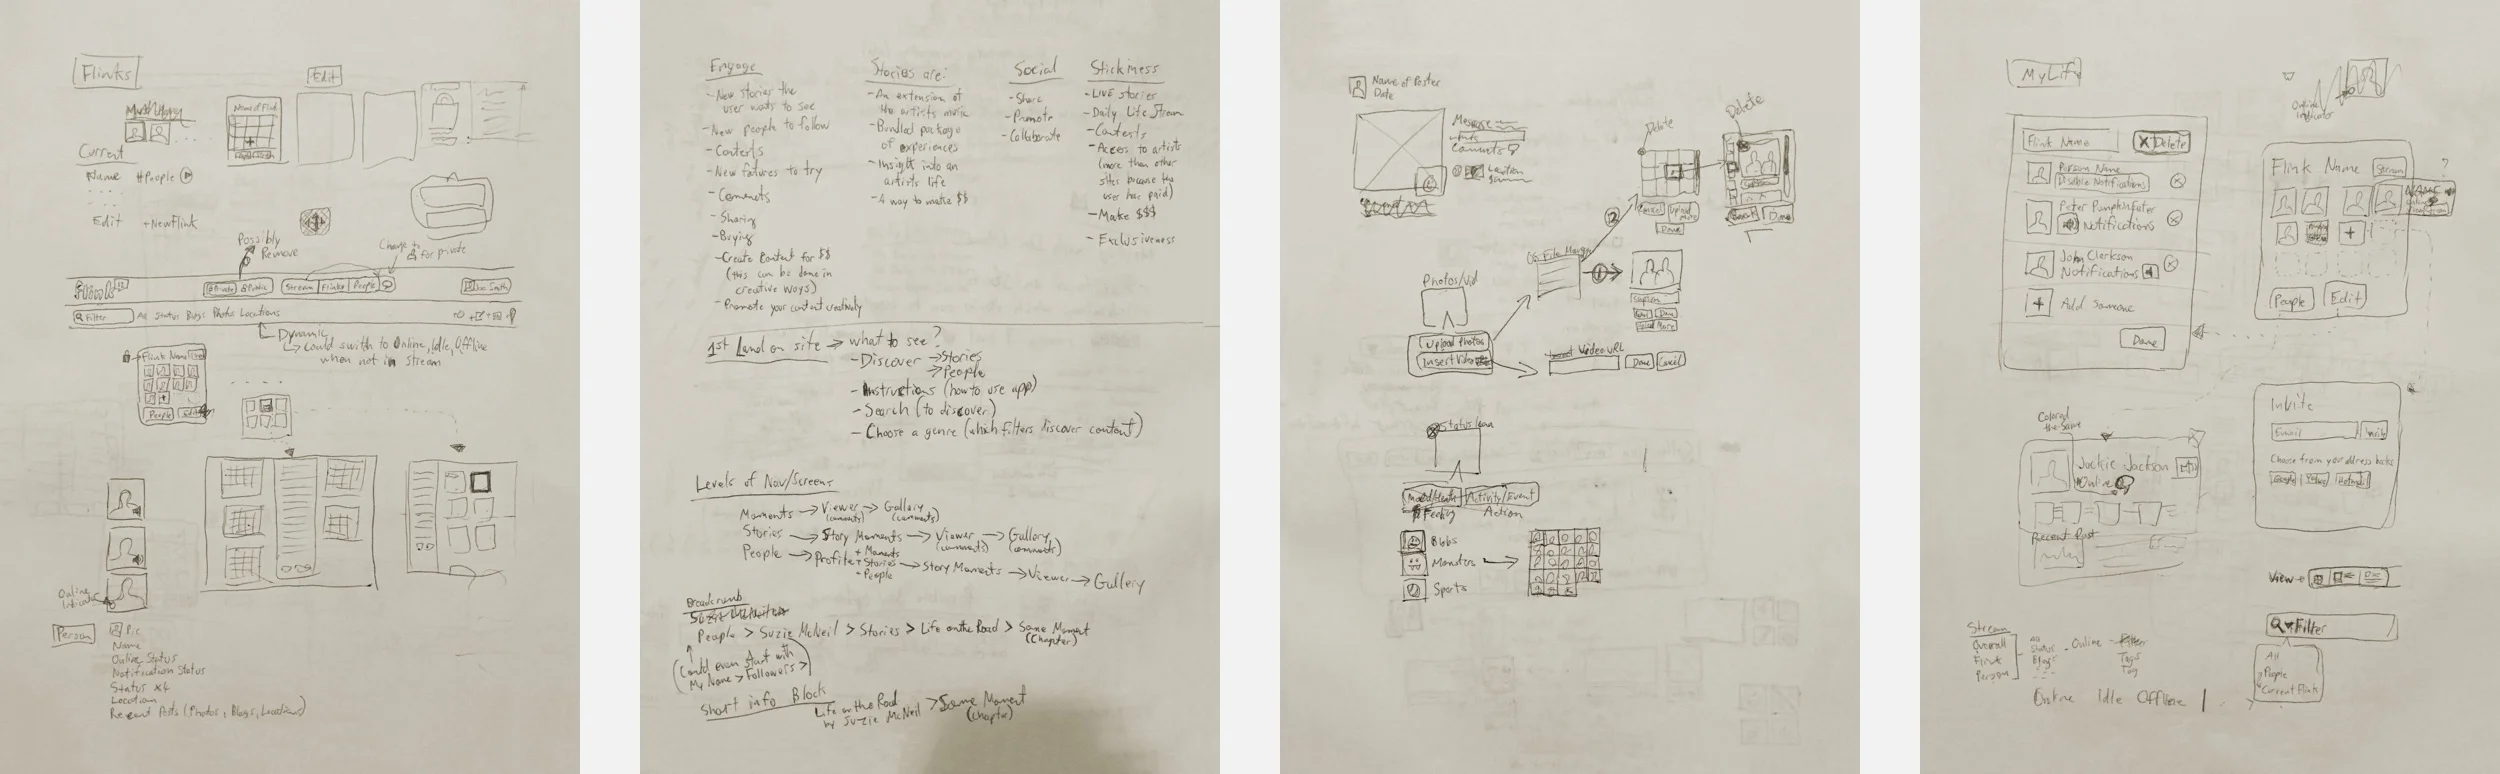 Flinks
Edit
Name of Flink
Current
Name #People
Edit +NewFlink
Possibly
Remove
Change to
for private
flink
Private Public
Stream Flinks People
Joe Smith
Filter All Status Blogs Photos Locations
Dynamic
Could switch to Online, Idle, Offline
when not in stream
Flink Name
People Edit
Online
Indicator
Person
Pic
Name
Online Status
Notification Status
Status x4
Location
Recent Posts (Photos, Blogs, Locations)
Engage
- New stories the
user wants to see
- New people to follow
- Contests
- New features to try
- Comments
- Sharing
- Buying
- Create Content for $$
(this can be done in
creative ways)
- Promote your content creatively
Stories are:
- An extension of
the artists music
- Bundled package
of experiences
- Insight into an
artists life
- A way to make $$
Social
- Share
- Promote
- Collaborate
Stickiness
- LIVE stories
- Daily Life Stream
- Contests
- Access to artists
(more than other
sites because the
user has paid)
- Make $$$
- Exclusiveness
1st Land on site → what to see?
- Discover → Stories
→ People
- Instructions (how to use app)
- Search (to discover)
- Choose a genre (which filters discover content)
Levels of Nav/Screens
Moments → Viewer → Gallery
(comments) (comments)
Stories → Story Moments → Viewer → Gallery
(comments) (comments)
People → Profile + Moments + Stories + People → Story Moments → Viewer → Gallery
Breadcrumb
People > Suzie McNeil > Stories > Life on the Road > Some Moment
(Chapter)
(Could even start with
My Name > Followers >)
Short info Block
Life on the Road > Some Moment
by Suzie McNeil (Chapter)
Name of Poster
Date
Message
Comments
Caption
Delete
Delete
Cancel Upload More
Done
Done
OS File Manager
2
1
Photos/Vid
Upload Photos
Insert Video
Video URL
Done Cancel
Status Icon
Activity/Event
Feeling Action
Blobs
Monsters
Sports
MyLife
Online
Indicator
Flink Name X Delete
Person Name
Disable Notifications
Peter PumpkinEater
Notifications
John Clarkson
Notifications
+ Add Someone
Done
Flink Name Stream
?
People Edit
Colored
the Same
Jackie Jackson
Online
Recent Post
Invite
Email Invite
Choose from your address books
Google Yahoo Hotmail
View
Filter
All
People
Current Flink
Stream
Overall
Flink
Person
All
Status
Blogs
- Online - Filter
Tags
Tag
Online Idle Offline